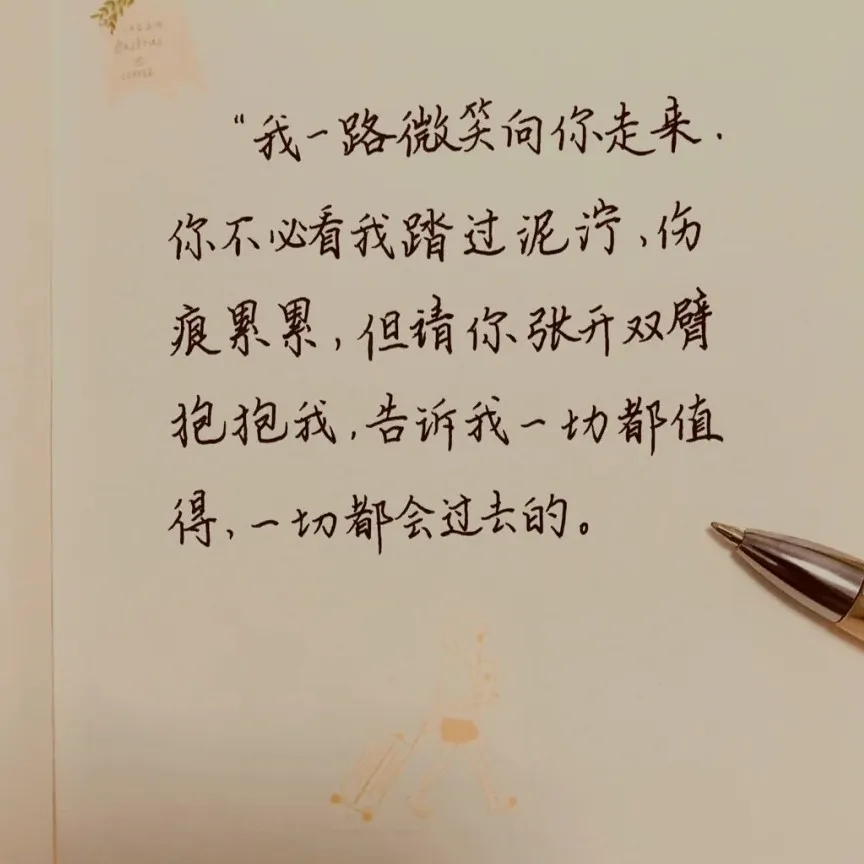 “我一路微笑向你走来.
你不必看我踏过泥泞、伤
痕累累,但请你张开双臂
抱抱我,告诉我一切都值
得,一切都会过去的。